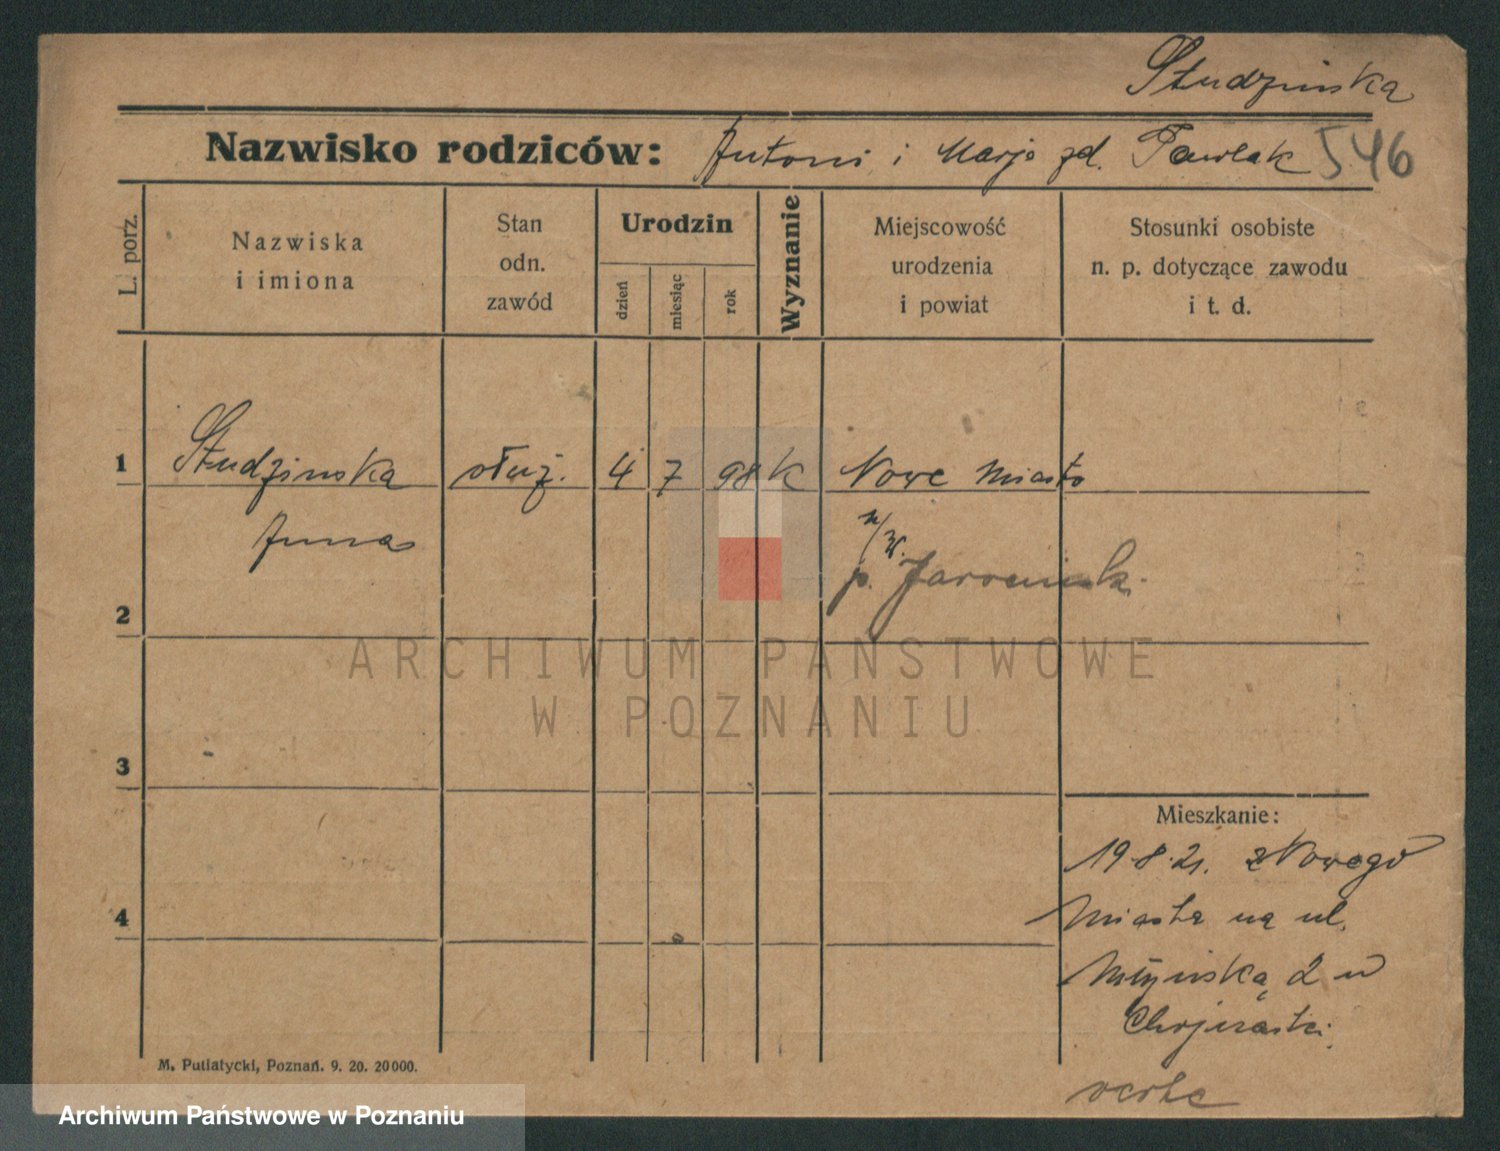 Studzinska
Nazwisko rodziców: Antoni i Marja zd. Pawlak 546
L. porz.
Nazwiska
i imiona
Stan
odn.
zawód
Urodzin
dzień
miesiąc
rok
Wyznanie
Miejscowość
urodzenia
i powiat
Stosunki osobiste
n. p. dotyczące zawodu
i t. d.
1 Studzinska służ. 4 7 98 K Nowe Miasto
Anna
n/W.
p. Jarocin
2
ARCHIWUM PAŃSTWOWE
W POZNANIU
3
Mieszkanie:
19.8.21. z Nowego
4
Miasta na ul.
Młyńską 2 u
verte
M. Putiatycki, Poznań. 9. 20. 20000.
Archiwum Państwowe w Poznaniu